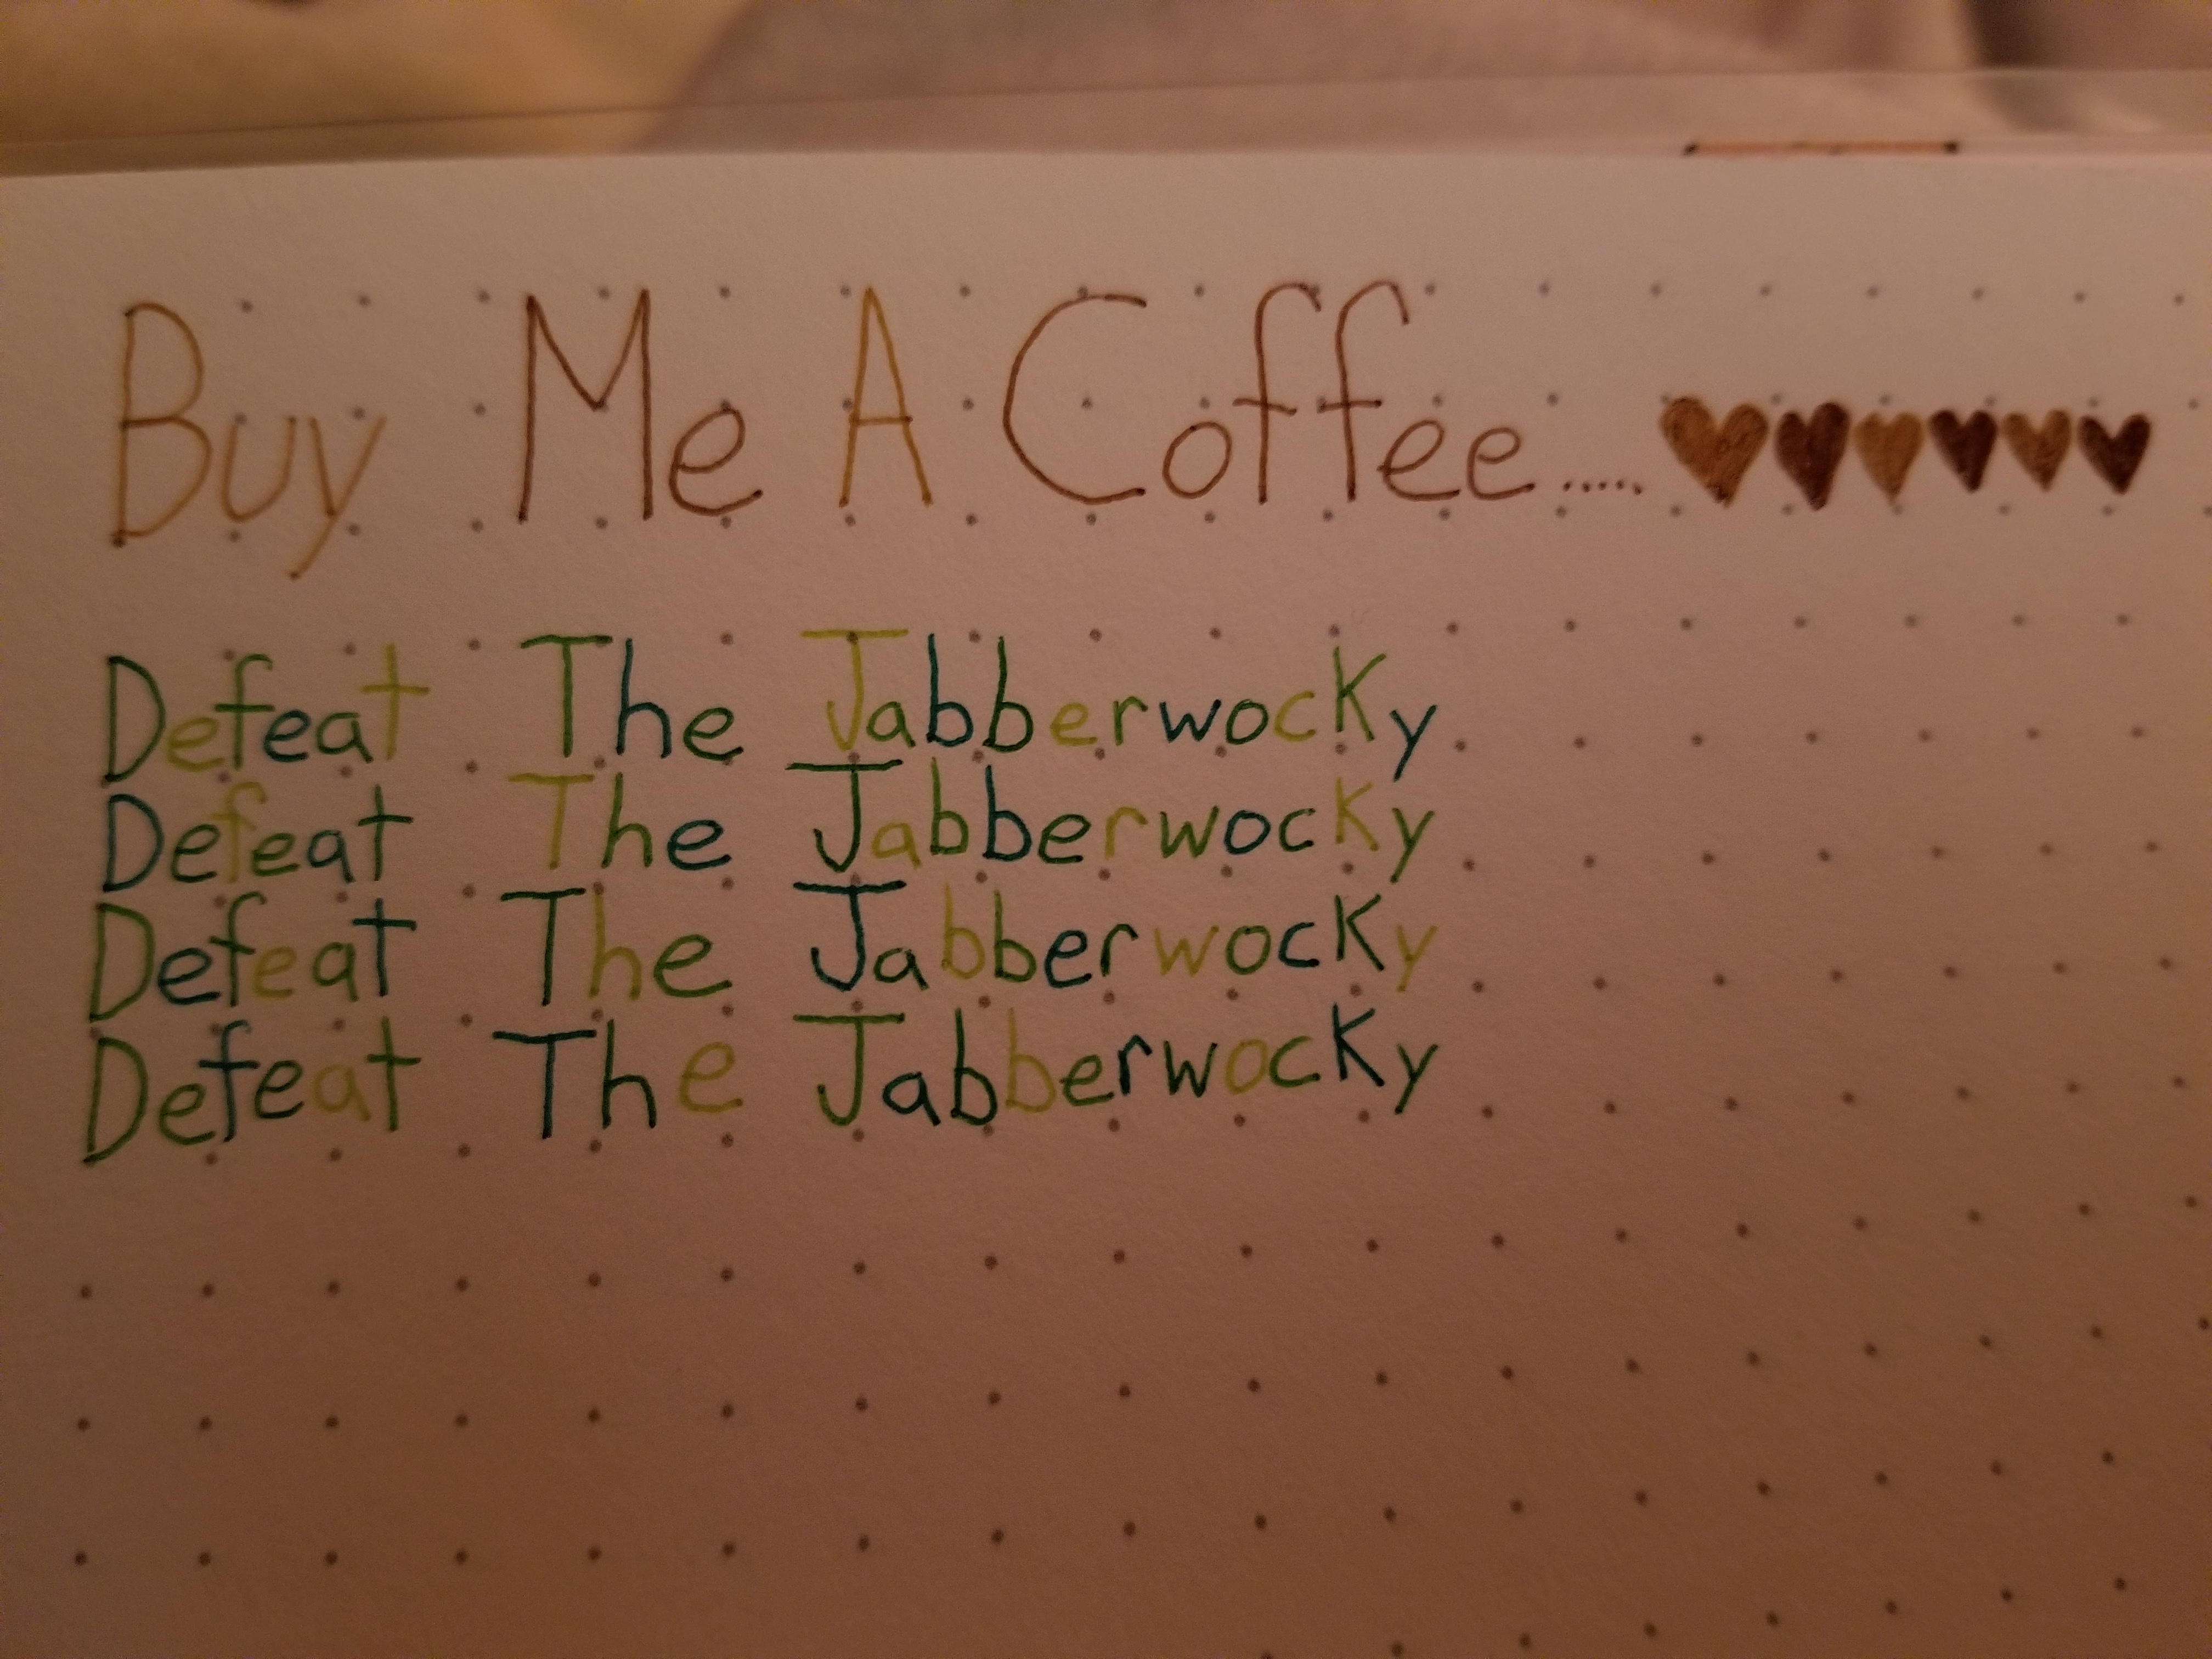 Buy Me A Coffee.....
Defeat The Jabberwocky
Defeat The Jabberwocky
Defeat The Jabberwocky
Defeat The Jabberwocky